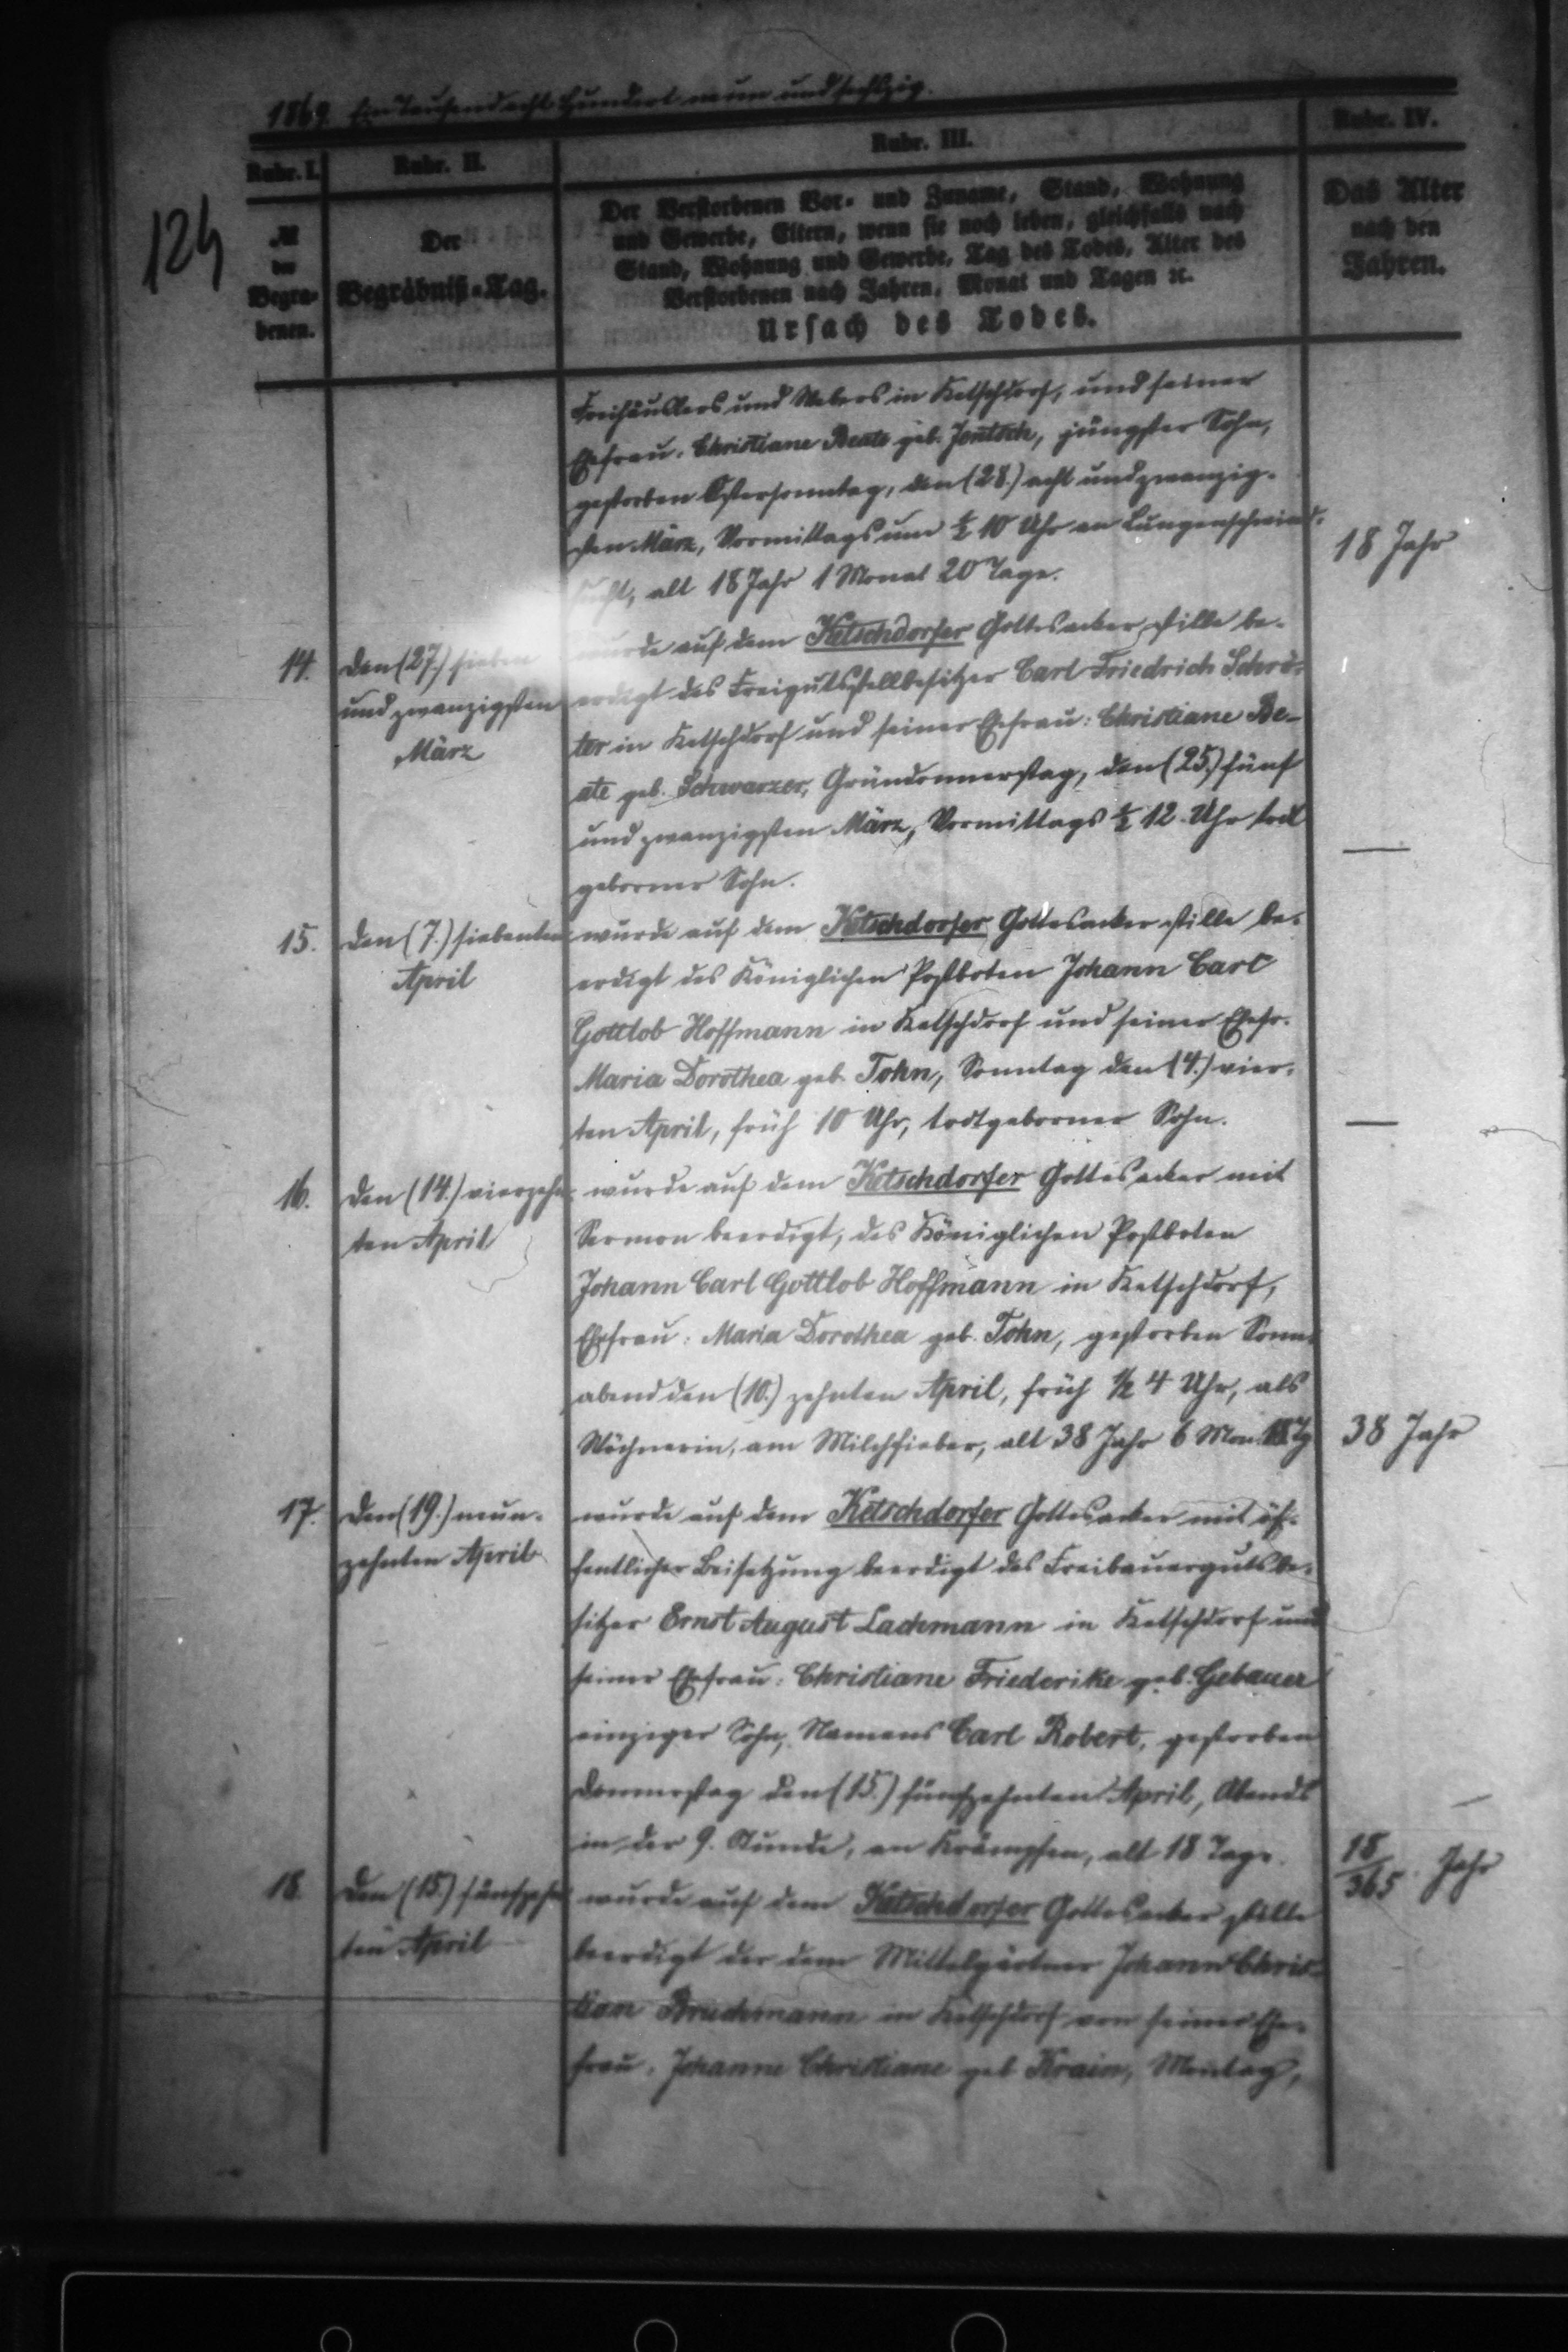 1869. Ein Tausend acht Hundert neun und sechszig.
124
Rubr. I.
Rubr. II.
Rubr. III.
Rubr. IV.
№
der
Begra-
benen.
Der
Begräbniß-Tag.
Der Verstorbenen Vor- und Zuname, Stand, Wohnung
und Gewerbe, Eltern, wenn sie noch leben, gleichfalls nach
Stand, Wohnung und Gewerbe, Tag des Todes, Alter des
Verstorbenen nach Jahren, Monat und Tagen ꝛc.
Ursach des Todes.
Das Alter
nach den
Jahren.
Freihäuslers und Webers in Ketschdorf, und seiner
Ehefrau: Christiane Beate geb. Jentsch, jüngster Sohn,
gestorben Ostersonntag, den (28.) acht und zwanzig-
sten März, Vormittags um ½ 10 Uhr an Lungenschwind-
sucht, alt 18 Jahr 1 Monat 20 Tage.
18 Jahr
14.
den (27.) sieben
und zwanzigsten
März
wurde auf dem Ketschdorfer Gottesacker stille be-
erdigt des Freigutsstellbesitzer Carl Friedrich Schrö-
ter in Ketschdorf und seiner Ehefrau: Christiane Be-
ate geb. Schwarzer, Gründonnerstag, den (25.) fünf
und zwanzigsten März, Vormittags ½ 12 Uhr todt
geborner Sohn.
—
15.
den (7.) siebenten
April
wurde auf dem Ketschdorfer Gottesacker stille be-
erdigt des Königlichen Postboten Johann Carl
Gottlob Hoffmann in Ketschdorf und seiner Ehefr.
Maria Dorothea geb. Tohn, Sonntag den (4.) vier-
ten April, früh 10 Uhr, todtgeborner Sohn.
—
16.
den (14.) vierzehn
ten April
wurde auf dem Ketschdorfer Gottesacker mit
Sermon beerdigt, des Königlichen Postboten
Johann Carl Gottlob Hoffmann in Ketschdorf,
Ehefrau: Maria Dorothea geb. Tohn, gestorben Sonn-
abend den (10.) zehnten April, früh ½ 4 Uhr, als
Wöchnerin, am Milchfieber, alt 38 Jahr 6 Mon. Tg
38 Jahr
17.
den (19.) neun-
zehnten April
wurde auf dem Ketschdorfer Gottesacker mit öf-
fentlicher Beisetzung beerdigt des Freibauergutsbe-
sitzer Ernst August Lachmann in Ketschdorf und
seiner Ehefrau: Christiane Friederike geb. Gebauer
einziger Sohn, Namens Carl Robert, gestorben
Donnerstag den (15.) fünfzehnten April, Abends
in der 9. Stunde, an Krämpfen, alt 18 Tage.
18/365 Jahr
18.
den (15.) fünfzehn
ten April
wurde auf dem Ketschdorfer Gottesacker stille
beerdigt der dem Mittelgärtner Johann Chris-
tian Bruchmann in Ketschdorf von seiner Ehe-
frau: Johanne Christiane geb. Krain, Montag,